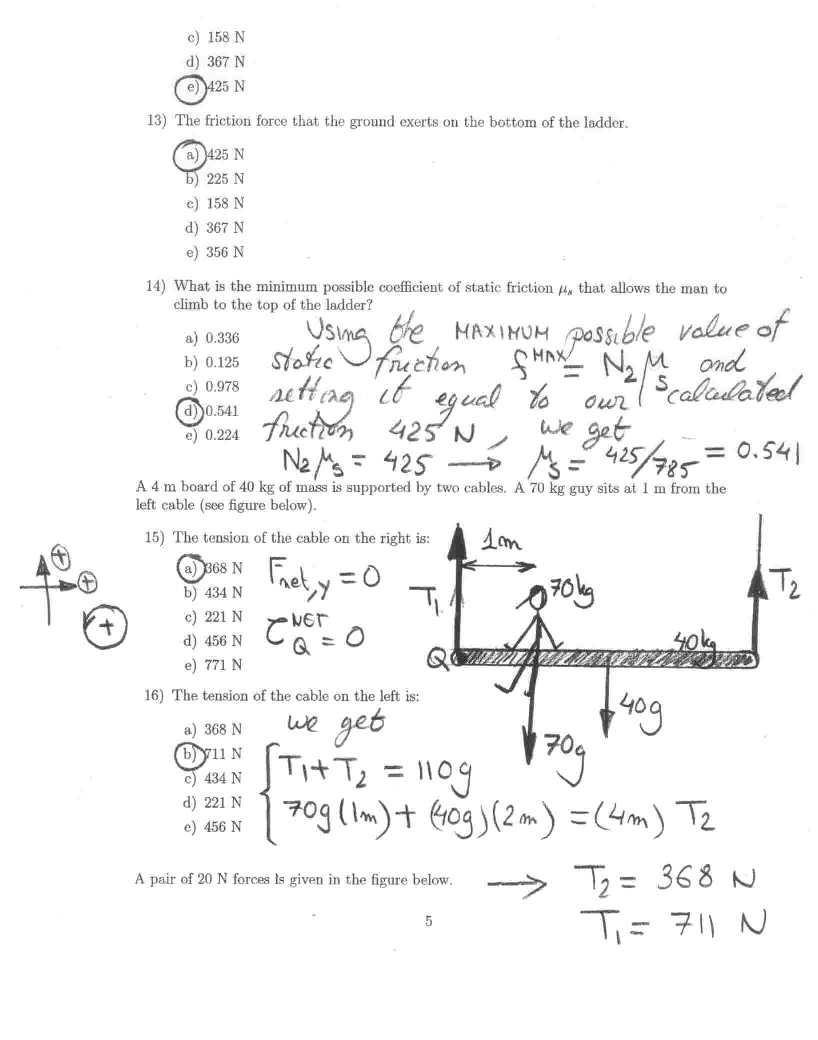 c) 158 N
d) 367 N
e) 425 N
13) The friction force that the ground exerts on the bottom of the ladder.
a) 425 N
b) 225 N
c) 158 N
d) 367 N
e) 356 N
14) What is the minimum possible coefficient of static friction μs that allows the man to
climb to the top of the ladder?
a) 0.336
b) 0.125
c) 0.978
d) 0.541
e) 0.224
Using the MAXIMUM possible value of
static friction f^MAX = N2 μs and
setting it equal to our calculated
friction 425 N, we get
N2 μs = 425 → μs = 425/785 = 0.541
A 4 m board of 40 kg of mass is supported by two cables. A 70 kg guy sits at 1 m from the
left cable (see figure below).
15) The tension of the cable on the right is:
a) 368 N
b) 434 N
c) 221 N
d) 456 N
e) 771 N
+
+
+
Fnet,y = 0
τQ^NET = 0
1m
T1
70kg
T2
Q
40kg
40g
70g
16) The tension of the cable on the left is:
a) 368 N
b) 711 N
c) 434 N
d) 221 N
e) 456 N
we get
T1 + T2 = 110g
70g (1m) + (40g)(2m) = (4m) T2
A pair of 20 N forces is given in the figure below.
→ T2 = 368 N
T1 = 711 N
5